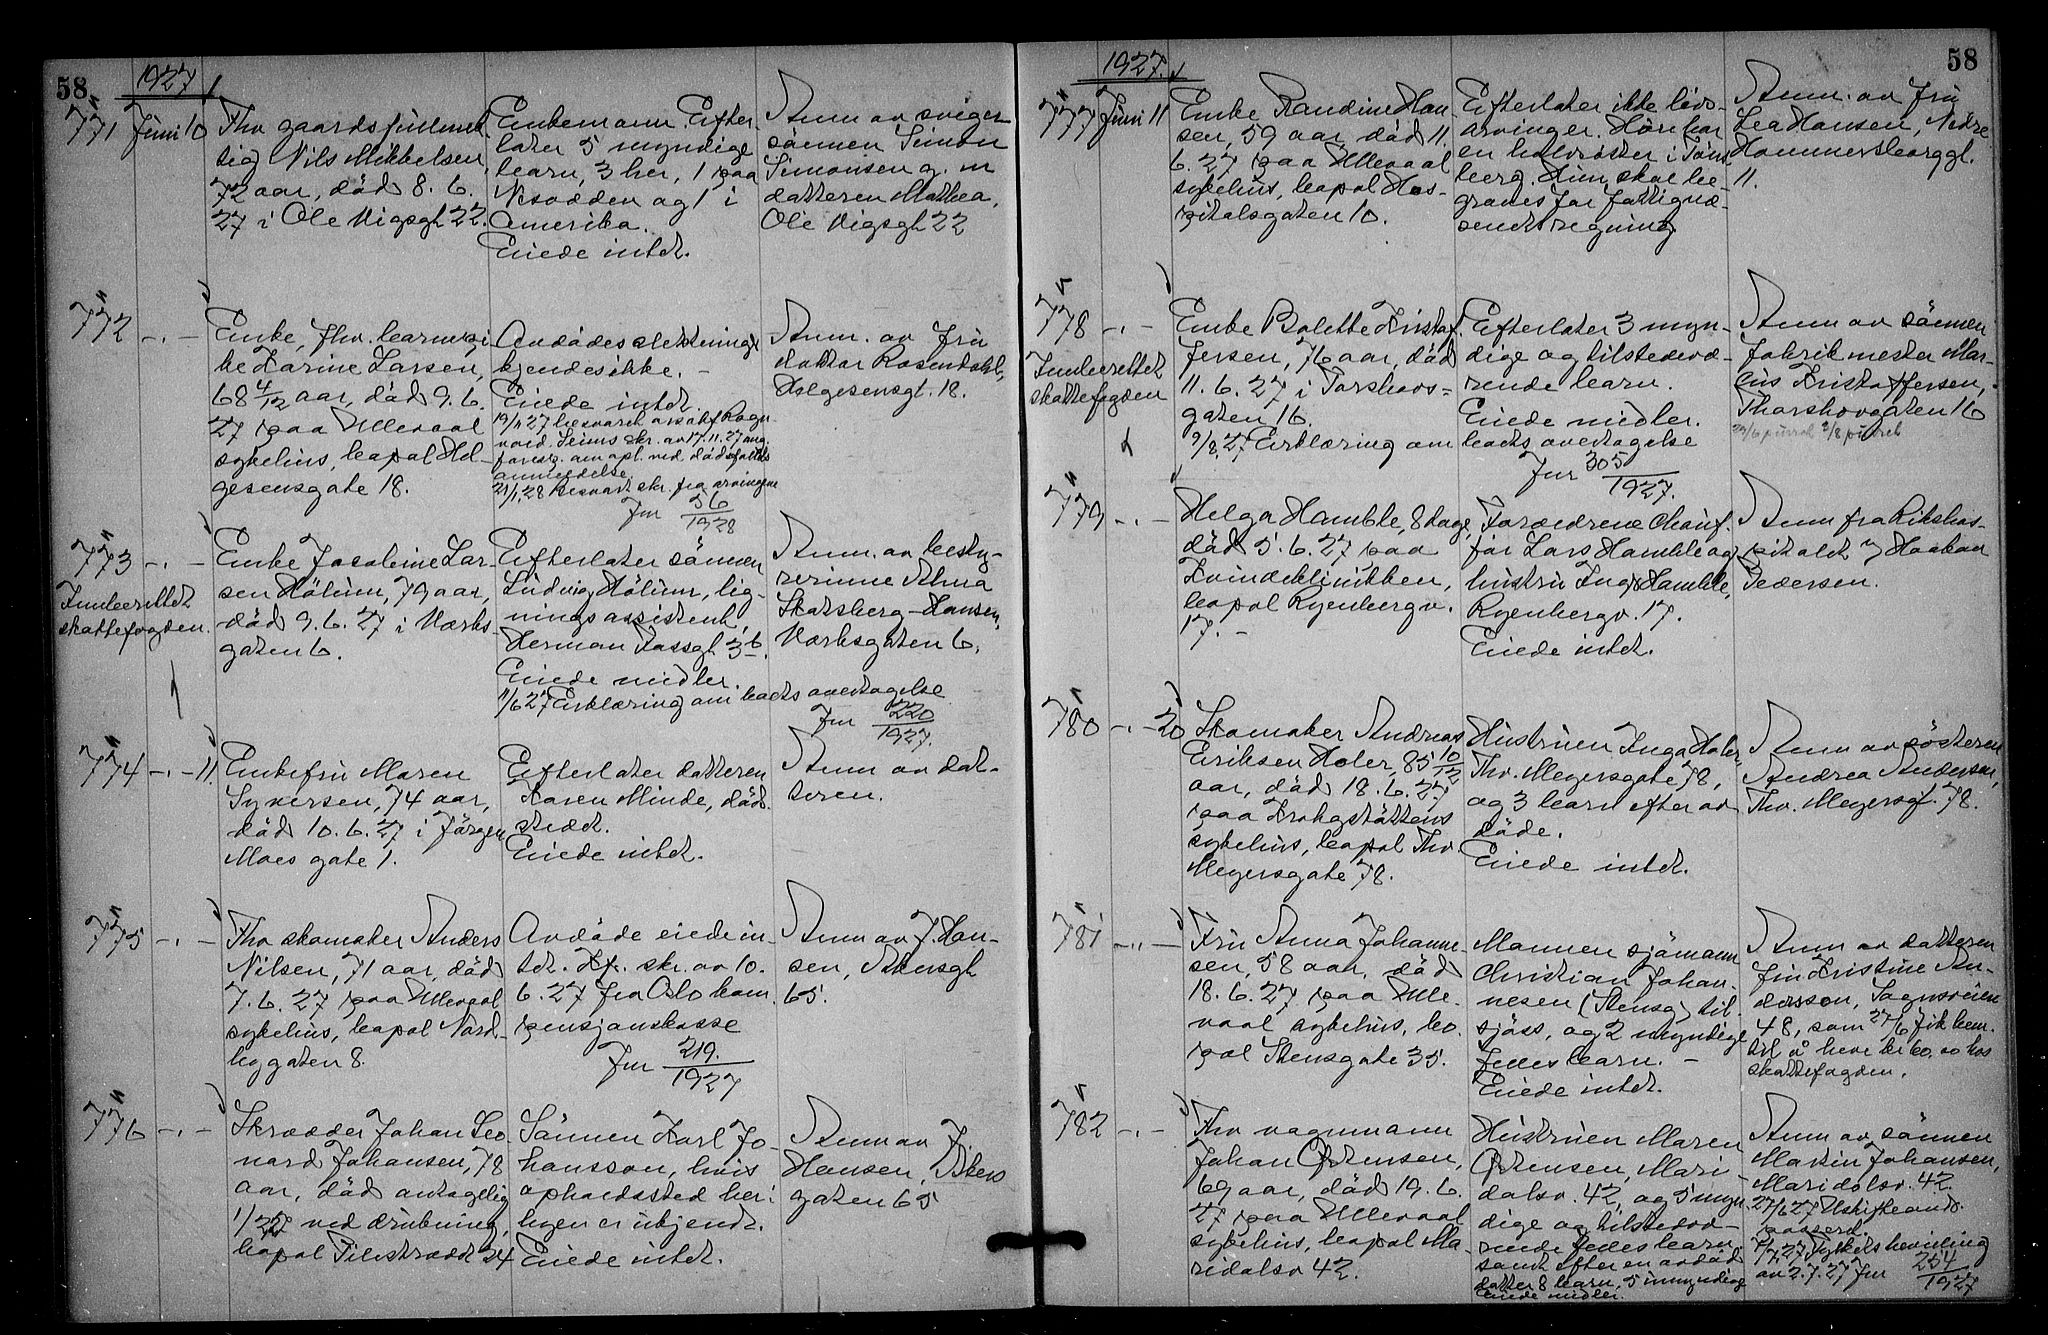 58
1927
771 Juni 10
Fhv gaardsfuldmek
tig Nils Mikkelsen,
72 aar, död 8. 6.
27 i Ole Vigsgt 22.
Enkemann. Efter-
later 5 myndige
barn, 3 her, 1 paa
Nesodden og 1 i
Amerika.
Eiede intet.
Anm av sviger
sönnen Simon
Simonsen g. m
datteren Mathea,
Ole Vigsgt 22
772 -"-
Enke, fhv. barnepi
ke Karine Larsen,
68 4/12 aar, död 9. 6.
27 paa Ullevaal
sykehus, bopal Hel-
gesensgate 18.
Avdödes slektninge
kjendes ikke. -
Eiede intet.
anmeldelse
Jnr 56
1928
Anm. av Fru
doktor Rosendahl,
Helgesensgt. 18.
773 -"-
Innberettet
skattefogden.
Enke Josefine Lar-
sen Hölum, 79 aar,
död 9. 6. 27 i Verks-
gaten 6.
Efterlater sönnen
Ludvig Hölum, lig-
ningsassistent,
Herman Fossgt 3 b.
Eiede midler.
11/6 27 Erklæring om boets overtagelse
Jnr 220
1927.
Anm. av besty-
rerinne Alma
Skatsberg-Hansen,
Verksgaten 6.
774 -"- 11
Enkefru Maren
Syversen, 74 aar,
död 10. 6. 27 i Jörgen
Moes gate 1.
Efterlater datteren
Karen Minde, död-
stedet.
Eiede intet.
Anm av dat-
teren.
775 -"-
Fhv skomaker Anders
Nilsen, 71 aar, död
7. 6. 27 paa Ullevaal
sykehus, bopal Nord-
bygaten 8.
Avdöde eiede in-
tet. Kfr. skr. av 10.
6. 27 fra Oslo kom.
pensjonskasse
Jnr 219.
1927
Anm av J. Han-
sen, Akersgt
65.
776 -"-
Skredder Johan Leo-
nard Johansen, 78
aar, död antagelig
1/5 27 ved drukning,
bopal Filestrædet 24
Sönnen Karl Jo-
hansson, hvis
opholdssted her i
byen er ukjendt.
Eiede intet.
Anm av J.
Hansen, Akers
gaten 65
58
1927.
777 Juni 11
Enke Randine Han-
sen, 59 aar, död 11.
6. 27 paa Ullevaal
sykehus, bopal Hos-
pitalsgaten 10.
Efterlater ikke livs-
arvinger. Hun har
en halvsöster i Töns
berg. Hun skal be-
graves for fattigvæ-
senets regning
Anm. av Fru
Lea Hansen, Nedre
Hammersborggt.
11.
778 -"-
Innberettet
skattefogden
Enke Bolette Kristof-
fersen, 76 aar, död
11. 6. 27 i Torshovs-
gaten 16.
9/8 27 Erklæring om boets overtagelse
Jnr 305
1927.
Efterlater 3 myn-
dige og tilstedevæ-
rende barn.
Eiede midler.
Anm av sönnen
Fabrikmester Mar-
ius Kristoffersen,
Thorshovgaten 16
779 -"-
Helga Hamble, 8 dage,
död 5. 6. 27 paa
Kvindeklinikken,
bopal Ryenbergv.
17. -
Forældrene Chauf-
för Lars Hamble og
hustru Inga Hamble,
Ryenbergv. 17.
Eiede intet.
Anm fra Rikshos-
pitalet v/ Haakon
Pedersen.
780 -"- 20
Skomaker Andreas
Eriksen Holer, 85 10/12
aar, död 18. 6. 27
paa Krohgstöttens
sykehus, bopal Thv.
Meyersgate 78.
Hustruen Inga Holer,
Thv. Meyersgate 78,
og 3 barn efter av
döde.
Eiede intet.
Anm av sösteren
Andrea Andersen,
Thv. Meyersgt. 78.
781 -"-
Fru Anna Johanne-
sen, 58 aar, död
18. 6. 27 paa Ulle-
vaal sykehus, bo-
pal Stensgate 35.
Mannen sjömann
Christian Johan-
nesen (Stensg) til-
sjöss, og 2 myndige
felles barn. -
Eiede intet.
Anm av datteren
fru Kristine An-
dersson, Sognsveien
48, som 27/6 fik bem.
til å heve kr 60,00 hos
skattefogden.
782 -"-
Fhv vognmann
Johan Östensen,
69 aar, död 19. 6.
27 paa Ullevaal
sykehus, bopal Ma-
ridalsv 42.
Hustruen Maren
Östensen, Mari-
dalsv. 42, og 5 myn
dige og tilstedevæ-
rende felles barn
samt efter en avdöd
datter 8 barn, 5 umyndige
Eiede midler.
Anm av sönnen
Martin Johansen,
Maridalsv. 42.
27/6 27 Uskifteand.
passerd.
7/7 27 Fylkets bevilling
av 2. 7. 27 Jnr 254
1927